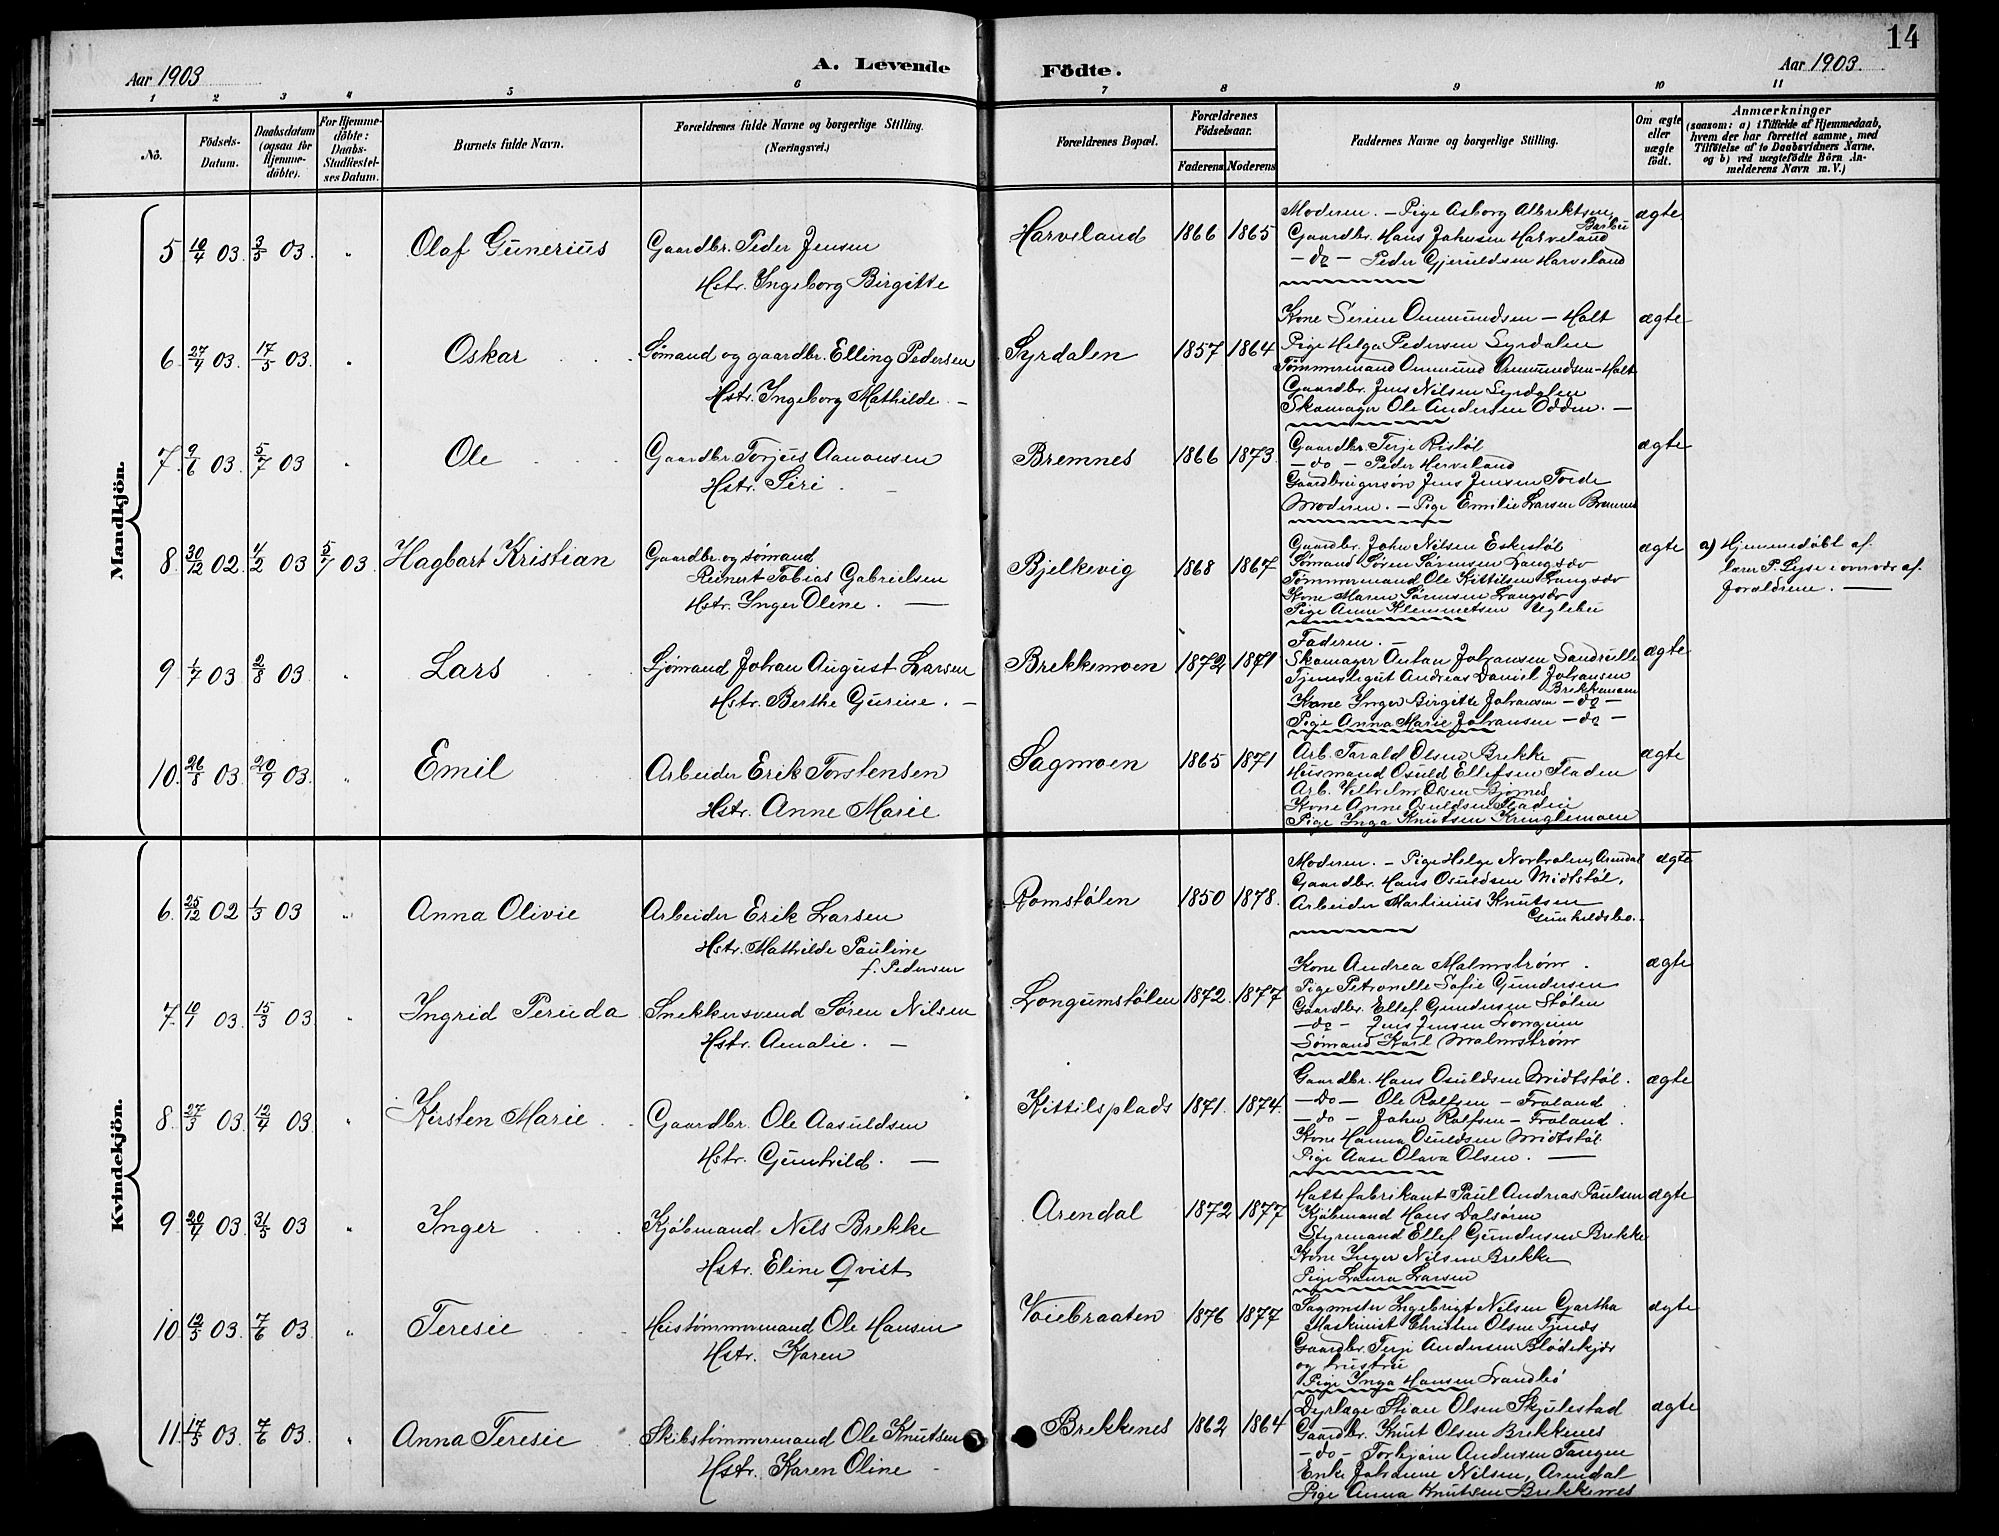 14
Aar 1903
A. Levende
Födte.
Aar 1903.
1 2 3 4 5 6 7 8 9 10 11
No.
Födsels-Datum.
Daabsdatum (ogsaa for Hjemmedöbte).
For Hjemmedöbte: Daabs-Stadfæstelses Datum.
Barnets fulde Navn.
Forældrenes fulde Navne og borgerlige Stilling. (Næringsvei.)
Forældrenes Bopæl.
Forældrenes Födselsaar.
Faderens Moderens
Faddernes Navne og borgerlige Stilling.
Om ægte eller uægte födt.
Anmærkninger
(saasom: a) i Tilfælde af Hjemmedaab, hvem der har forrettet samme, med Tilföielse af to Daabsvidners Navne, og b) ved uægtefödte Börn Anmelderens Navn m. V.)
Mandkjön.
5 10/4 03. 3/5 03. " Olaf Gunerius
Gaardbr. Peder Jensen
Hstr. Ingeborg Birgitte
Harveland 1866 1865
Moderen. – Pige Asborg Albrektsen, Barbu
Gaardbr. Hans Johnsen Harveland
– do – Peder Gjeruldsen Harveland
ægte
6 27/4 03. 17/5 03. " Oskar
Sømand og gaardbr. Elling Pedersen
Hstr. Ingeborg Mathilde. –
Syrdalen 1857 1864
Kone Serine Ommundsen – Holt
Pige Helga Pedersen Syrdalen
Tømmermand Ommund Ommundsen – Holt
Gaardbr. Jens Nilsen Syrdalen
Skomager Ole Andersen Odden. –
ægte
7 9/6 03. 5/7 03 " Ole
Gaardbr. Torjus Aanonsen
Hstr. Siri –
Bremnes 1866 1873
Gaardbr. Terje Ristøl
– do – Peder Herveland
Gaardbrugersøn Jens Jensen Torde
Moderen. – Pige Emilie Larsen Bremnes
ægte
8 30/12 02. 4/2 03 5/7 03. Hagbart Kristian
Gaardbr. og sømand
Reinert Tobias Gabrielsen
Hstr. Inger Oline. –
Bjelkevig 1868 1867
Gaardbr. John Nilsen Eskestøl
Sømand Søren Sørensen Langsæv
Tømmermand Ole Kittilsen Langsæv
Kone Maren Sørensen Langsæv
Pige Anne Klemmetsen Uglebu
ægte
a) Hjemmedøbt af
lærer P. Lyse i overvær af
forældrene. –
9 1/7 03 2/8 03. " Lars
Sjømand Johan August Larsen
Hstr. Berthe Gurine. –
Brekkemoen 1872 1871
Faderen. –
Skomager Anton Johansen Sandrille
Tjenestegut Andreas Daniel Johansen Brekkemoen
Kone Inger Birgitte Johansen – do –
Pige Anna Marie Johansen – do –
ægte
10. 26/8 03. 20/9 03. " Emil
Arbeider Erik Torstensen
Hstr. Anne Marie
Sagmoen 1865 1871
Arb. Tarald Olsen Brekke
Husmand Osuld Ellefsen Fladen
Arb. Vilhelm Olsen Bjørnes
Kone Anne Osuldsen Fladen
Pige Inga Knutsen Kringlemoen
ægte
Kvindekjön.
6. 25/12 02 1/3 03 " Anna Olivie
Arbeider Erik Larsen
Hstr. Mathilde Pauline
f. Pedersen
Romstølen 1850 1878.
Moderen. – Pige Helge Norkvalen, Arendal
Gaardbr. Hans Osuldsen Midtstøl,
Arbeider Martinius Knutsen
Gunhildsbo.
ægte
7. 10/1 03. 15/3 03. " Ingrid Peruda
Snekkersvend Søren Nilsen
Hstr. Amalie. –
Longumstølen 1872. 1877
Kone Andrea Malmstrøm.
Pige Petronelle Sofie Gundersen
Gaardbr. Ellef Gundersen Stølen
– do – Jens Jensen Longum
Sømand Karl Malmstrøm
ægte
8. 27/3 03. 12/4 03. " Kirsten Marie
Gaardbr. Ole Aasuldsen
Hstr. Gunhild. –
Kittilsplads 1871. 1874.
Gaardbr. Hans Osuldsen Midtstøl.
– Do – Ole Rolfsen – Froland
– do – John Rolfsen – Froland.
Kone Hanna Osuldsen Midtstøl.
Pige Aase Olava Olsen. –
ægte
9 20/4 03. 31/5 03 " Inger
Kjøbmand Nils Brekke
Hstr. Eline Qvist
Arendal 1872 1877
Hattefabrikant Paul Andreas Paulsen
Kjøbmand Hans Dalsøren
Styrmand Ellef Gundersen Brekke
Kone Inger Nilsen Brekke
Pige Laura Larsen
ægte
10. 12/5 03. 7/6 03. " Teresie
Hustømmermand Ole Hansen
Hstr. Karen
Voiebraaten 1876 1877
Sagmester Ingebrigt Nilsen Gartha
Maskinist Christen Olsen
Gaardbr. Terje Andersen Blødekjær
og hustru
Pige Inga Hansen Landbø
ægte
11. 17/5 03. 7/6 03. " Anna Teresie
Skibstømmermand Ole Knutsen
Hstr. Karen Oline –
Brekkenes 1862 1864
Dyrlæge Stian Olsen Skjulestad
Gaardbr. Knut Olsen Brekkenes
– do – Torbjørn Andersen Tangen
Enke Johanne Nilsen, Arendal
Pige Anna Knutsen Brekkenes
ægte